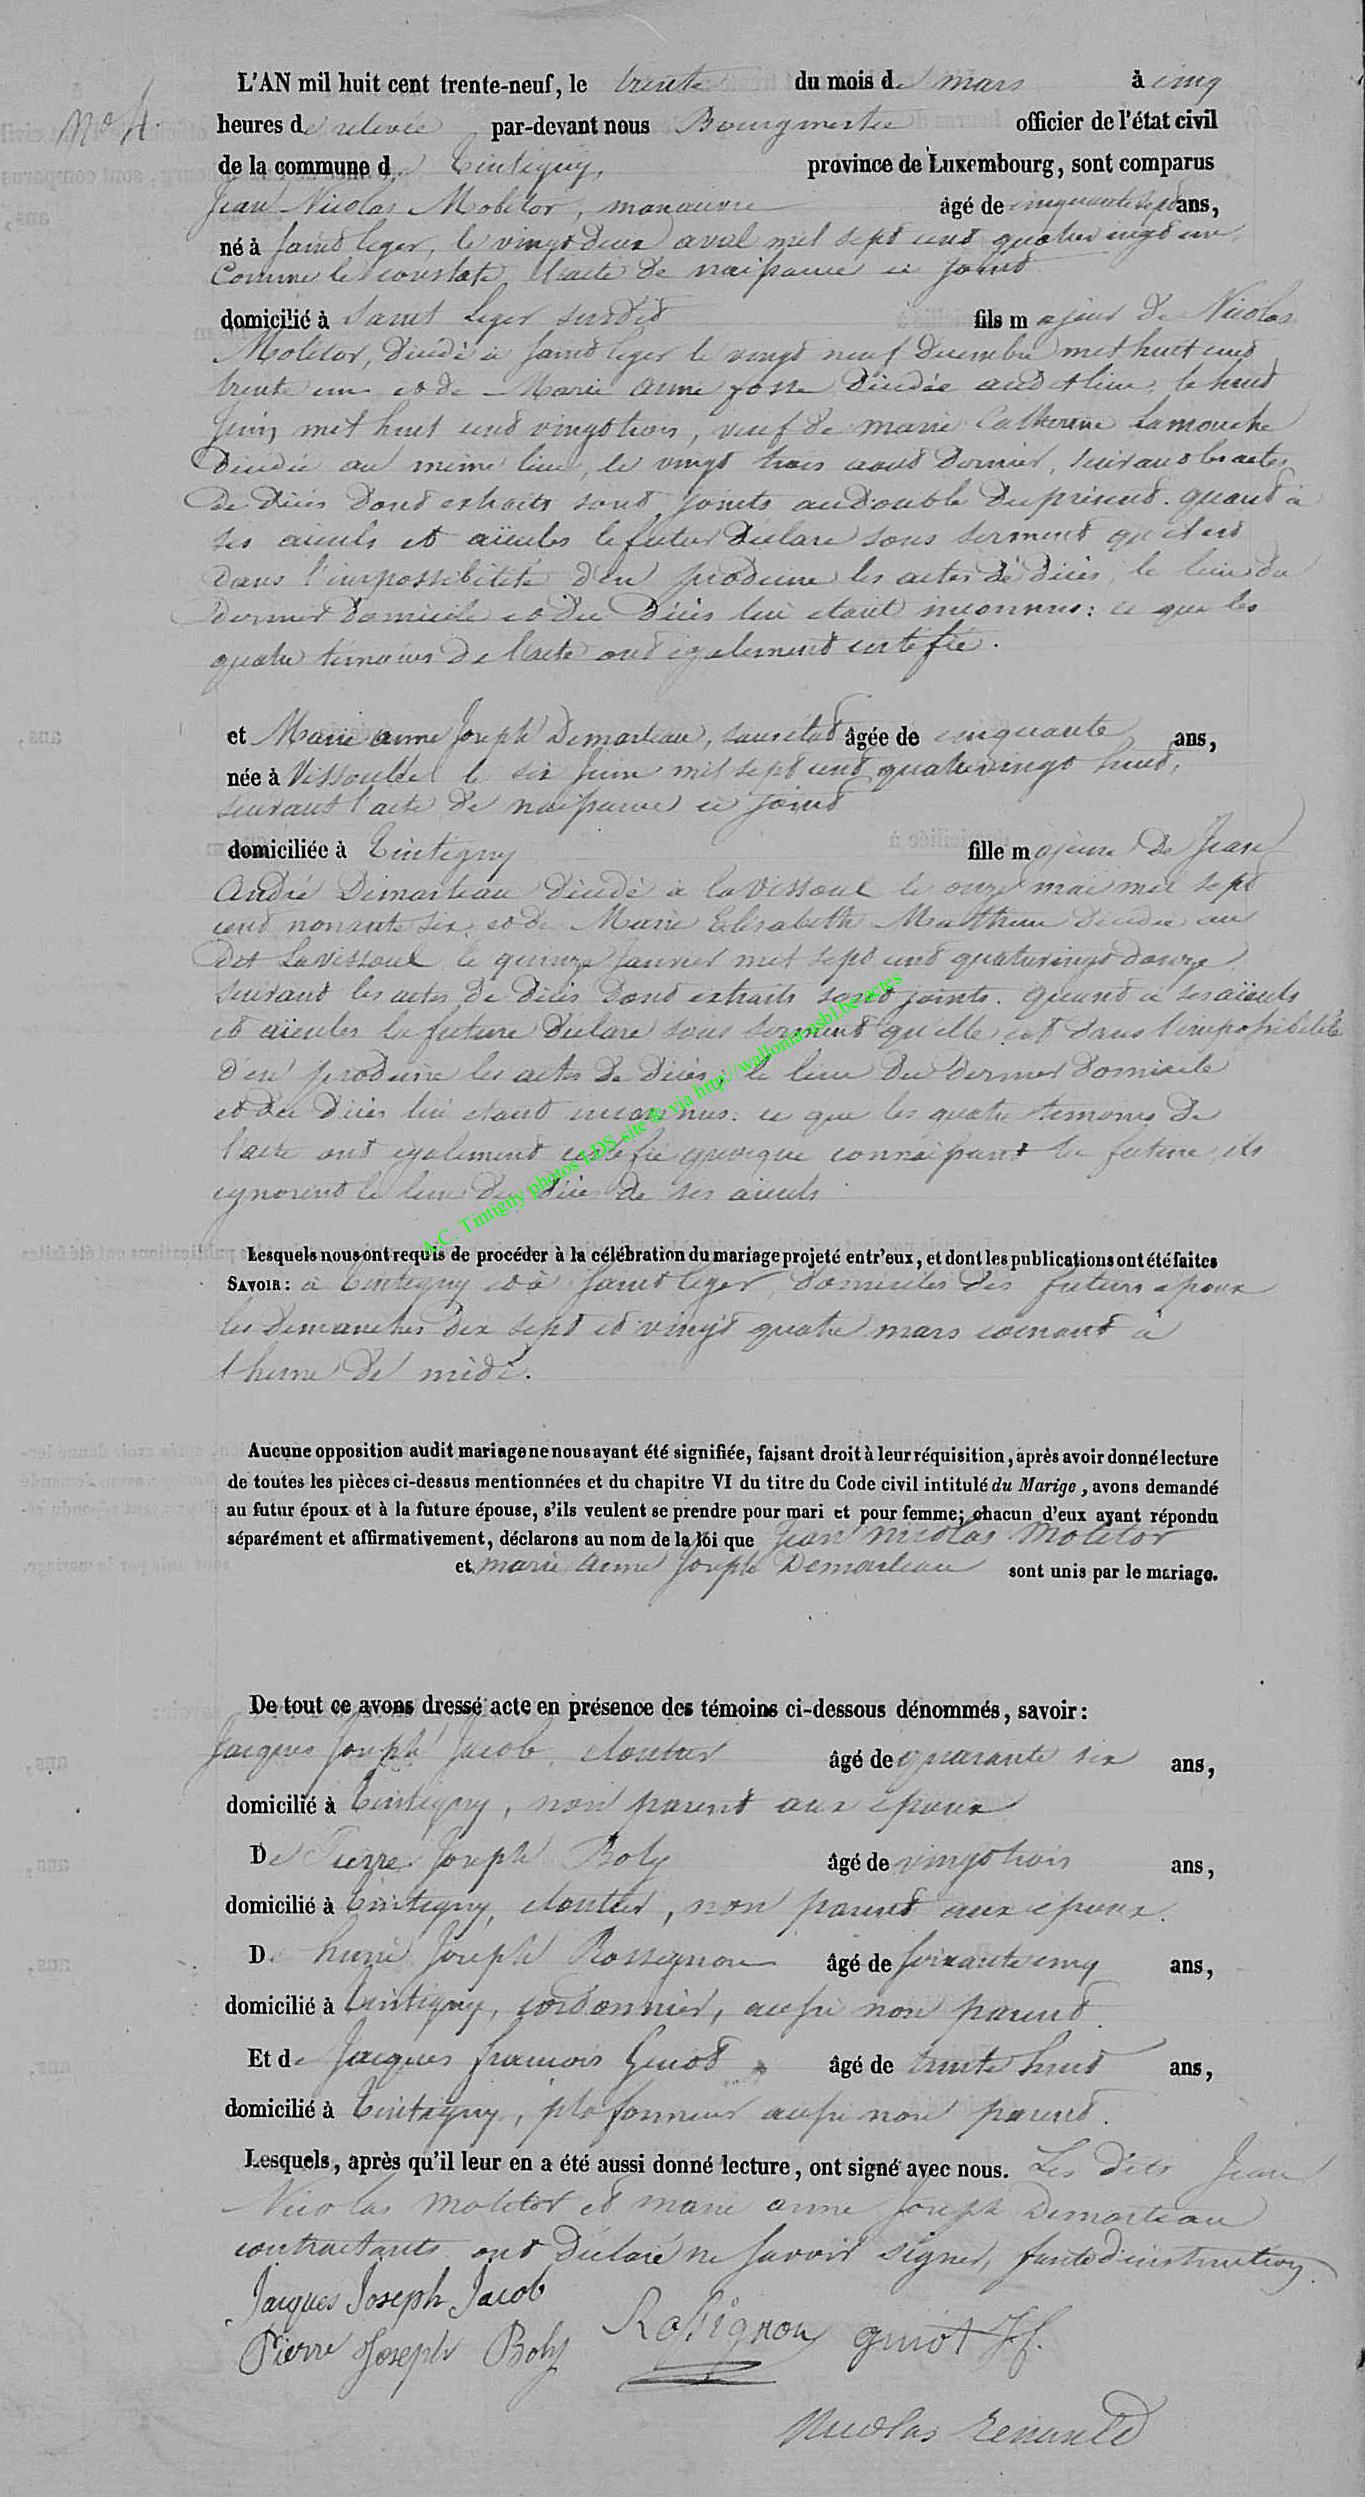 L'AN mil huit cent trente-neuf, le trente du mois de mars à cinq
No 4. heures de relevée par-devant nous Bourgmestre officier de l'état civil
de la commune de Tintigny, province de Luxembourg, sont comparus
Jean Nicolas Molitor, manœuvre âgé de cinquante sept ans,
né à Saint leger, le vingt deux avril mil sept cent quatrevingt un
Comme le constate l'acte de naissance ci joint
domicilié à Saint Leger susdit fils majeur de Nicolas
Molitor, décédé à Saint leger le vingt neuf Décembre mil huit cent
trente un et de Marie anne fosse décédée audit lieu, le huit
Juin mil huit cent vingt trois, veuf de marie Catherine Lamouche
décédée au même lieu, le vingt trois aout dernier, suivant les actes
de décès dont extraits sont joints au double du présent. quant à
ses aïeuls et aïeules le futur déclare sous serment qu'il est
dans l'impossibilité d'en produire les actes de décès, le lieu du
dernier domicile et du décès lui étant inconnus: ce que les
quatre témoins de l'acte ont également certifié.
et Marie anne Joseph Demarteau, sans état âgée de cinquante ans,
née à Vissoulle le six Juin mil sept cent quatrevingt huit,
suivant l'acte de naissance ci joint
domiciliée à Tintigny fille majeure de Jean
André Demarteau décédé à lavissoul le onze mai mil sept
cent nonante six et de Marie Elisabeth Matthieu décédée au
dit Lavissoul le quinze Janvier mil sept cent quatrevingt douze
suivant les actes de décès dont extraits sont joints. quant à ses aïeuls
et aïeules la future déclare sous serment qu'elle est dans l'impossibilité
d'en produire les actes de décès, le lieu du dernier domicile
et du décès lui étant inconnus: ce que les quatre temoins de
l'acte ont également certifié quoique connaissant la future, ils
ignorent le lieu du décès de ses aieuls
A.C. Tintigny photos LDS site & via http://wallonia-asbl.be/actes
Lesquels nous ont requis de procéder à la célébration du mariage projeté entr'eux, et dont les publications ont été faites
SAVOIR: à Tintigny et à Saint leger, domiciles des futurs epoux
les Dimanches dix sept et vingt quatre mars courant à
l'heure de midi.
Aucune opposition audit mariage ne nous ayant été signifiée, faisant droit à leur réquisition, après avoir donné lecture
de toutes les pièces ci-dessus mentionnées et du chapitre VI du titre du Code civil intitulé du Marige, avons demandé
au futur époux et à la future épouse, s'ils veulent se prendre pour mari et pour femme; chacun d'eux ayant répondu
séparément et affirmativement, déclarons au nom de la loi que Jean nicolas molitor
et marie anne Joseph Demarteau sont unis par le mariage.
De tout ce avons dressé acte en présence des témoins ci-dessous dénommés, savoir:
Jacques Joseph Jacob, cloutier âgé de quarante six ans,
domicilié à Tintigny, non parent aux époux
De Pierre Joseph Boly âgé de vingt trois ans,
domicilié à Tintigny, cloutier, non parent aux epoux.
De henri Joseph Rossignon âgé de soixante cinq ans,
domicilié à Tintigny, cordonnier, aussi non parent.
Et de Jacques francois Guiot âgé de trente huit ans,
domicilié à Tintigny, plafonneur aussi non parent.
Lesquels, après qu'il leur en a été aussi donné lecture, ont signé avec nous. Les dits Jean
Nicolas molitor et marie anne Joseph Demarteau
contractants ont déclaré ne savoir signer, faute d'instruction.
Jacques Joseph Jacob
Pierre Joseph Boly Rossignon guiot J f.
Nicolas Renauld